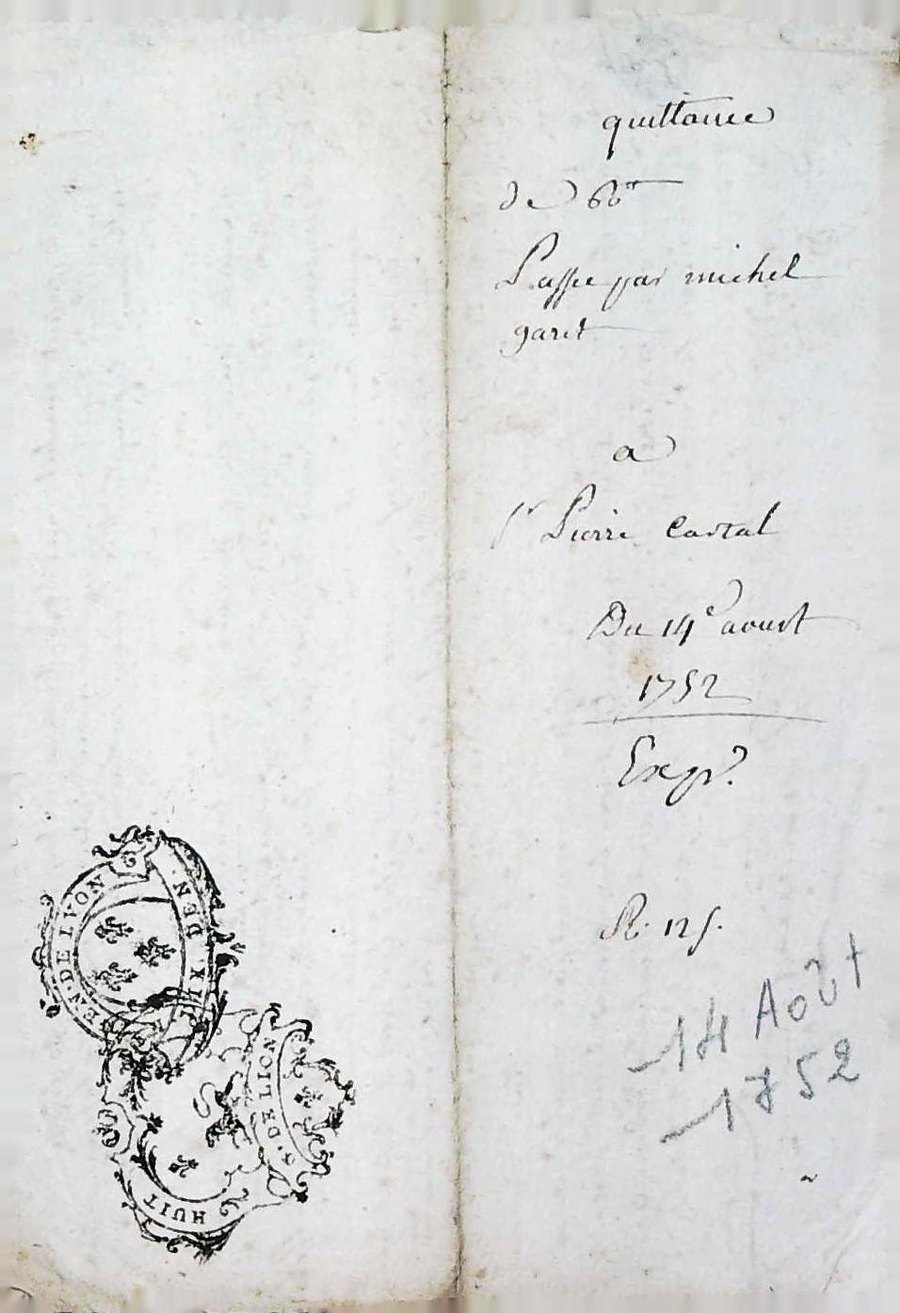 quittance
de 60tt
Passée par michel
garet
a
sr Pierre Cartal
Du 14e aoust
1752
Expr.
R. 12s.
14 Août
1752
EN. DE LYON
DEN. X.
S. DE LION
HUIT